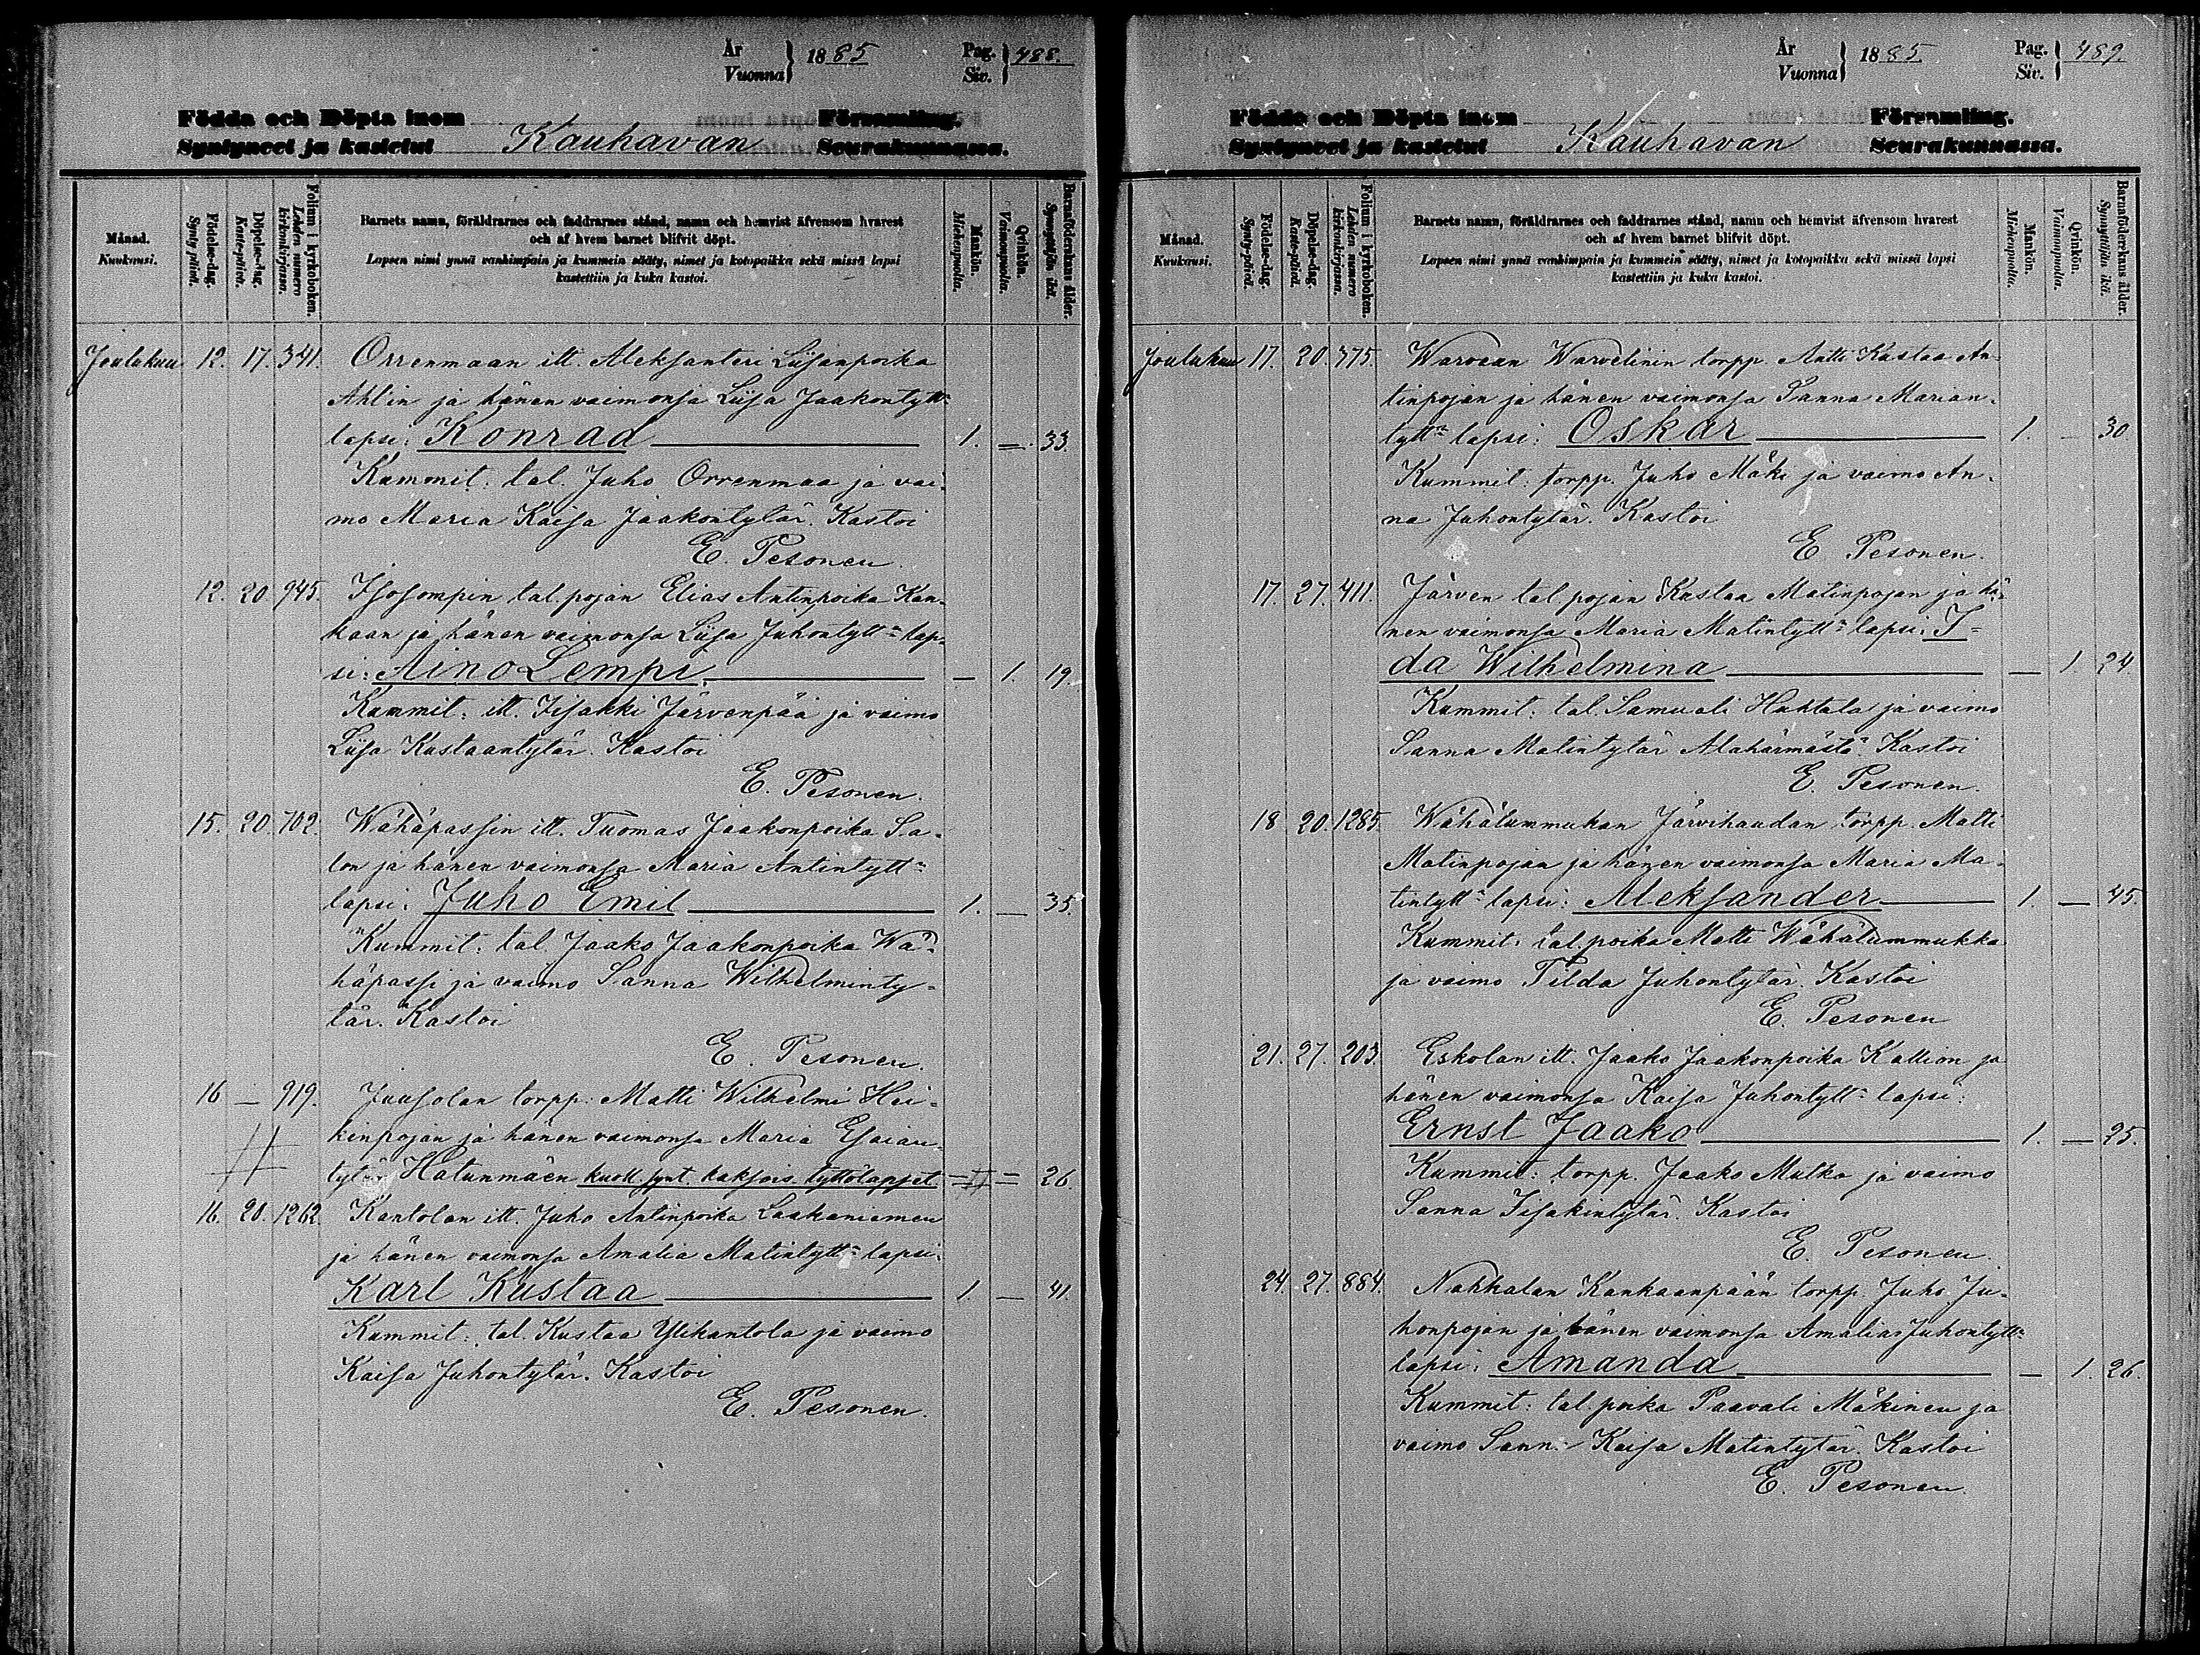 År
Vuonna } 1885
Pag.
Siv. } 488.
Födda och Döpta inom
Syntyneet ja kastetut Kauhavan
Församling.
Seurakunnassa.
Månad.
Kuukausi.
Födelse-dag.
Synty-päivä.
Döpelse-dag.
Kaste-päivä.
Folium i kyrkoboken.
Lehden numero
kirkonkirjassa.
Barnets namn, föräldrarnes och faddrarnes stånd, namn och hemvist äfvensom hvarest
och af hvem barnet blifvit döpt.
Lapsen nimi ynnä vanhimpain ja kummein sääty, nimet ja kotopaikka sekä missä lapsi
kastettiin ja kuka kastoi.
Mankön.
Miehenpuolia.
Qvinkön.
Vaimonpuolia.
Barnaföderskans ålder.
Synnyttäjän ikä.
Joulukuu 12. 17. 341. Orrenmaan itt. Aleksanteri Liisanpoika
Ahlin ja hänen vaimonsa Liisa Jaakontytt:n
lapsi: Konrad 1. — 33.
Kummit: tal. Juho Orrenmaa ja vai-
mo Maria Kaisa Jaakontytär. Kastoi
E. Pesonen.
12. 20. 945. Isosompin tal. pojan Elias Antinpoika Kan-
kaan ja hänen vaimonsa Liisa Juhontytt:n lap-
si: Aino Lempi. — 1. 19.
Kummit: itt. Iisakki Järvenpää ja vaimo
Liisa Kustaantytär. Kastoi
E. Pesonen.
15. 20. 702. Wähäpassin itt. Tuomas Jaakonpoika Sa-
lon ja hänen vaimonsa Maria Antintytt:n
lapsi: Juho Emil 1. — 35.
Kummit: tal. Jaako Jaakonpoika Wä-
häpassi ja vaimo Sanna Wilhelminty-
tär. Kastoi
E. Pesonen.
16 — 919. Juusolan torpp: Matti Wilhelmi Hei-
kinpojan ja hänen vaimonsa Maria Esaian-
Hatunmäen kuoll. synt. kaksois tyttölapset = II = 26.
16. 20. 1262. Kantolan itt. Juho Antinpoika Laakaniemen
ja hänen vaimonsa Amalia Matintytt:n lapsi:
Karl Kustaa 1. — 41.
Kummit: tal. Kustaa Ylikantola ja vaimo
Kaisa Juhontytär. Kastoi
E. Pesonen.
År
Vuonna } 1885.
Pag.
Siv. } 489.
Födde och Döpta inom
Syntyneet ja kastetut Kauhavan
Församling.
Seurakunnassa.
Månad.
Kuukausi.
Födelse-dag.
Synty-päivä.
Döpelse-dag.
Kaste-päivä.
Folium i kyrkoboken.
Lehden numero
kirkonkirjassa.
Barnets namn, föräldrarnes och faddrarnes stånd, namn och hemvist äfvensom hvarest
och af hvem barnet blifvit döpt.
Lapsen nimi ynnä vanhimpain ja kummein sääty, nimet ja kotopaikka sekä missä lapsi
kastettiin ja kuka kastoi.
Mankön.
Miehenpuolia.
Qvinkön.
Vaimonpuolia.
Barnaföderskans ålder.
Synnyttäjän ikä.
Joulukuu 17. 20. 375. Warvelinin torpp. Antti Kustaa An-
tinpojan ja hänen vaimonsa Sanna Marian-
tytt:n lapsi: Oskar 1. — 30
Kummit: torpp. Juho Mäki ja vaimo An-
na Juhontytär. Kastoi
E. Pesonen.
17. 27. 411. Järven tal. pojan Kustaa Matinpojan ja hä-
nen vaimonsa Maria Matintytt:n lapsi: I-
da Wilhelmina — 1. 24.
Kummit: tal. Samueli Huhtala ja vaimo
Sanna Matintytär Alahärmästä. Kastoi
E. Pesonen.
18 20. 1285. Wähälummukan Järvihaudan torpp. Matti
Matinpojan ja hänen vaimonsa Maria Ma-
tintytt:n lapsi: Aleksander 1. — 45.
Kummit: tal. poika Matti Wähälummukka
ja vaimo Tilda Juhontytär. Kastoi
E. Pesonen
21. 27. 203. Eskolan itt. Jaako Jaakonpoika Kallion ja
hänen vaimonsa Kaisa Juhontytt:n lapsi:
Ernst Jaako 1. — 25.
Kummit: torpp. Jaako Mutka ja vaimo
Sanna Iisakintytär. Kastoi
E. Pesonen.
24. 27. 884. Nahkalan Kankaanpään torpp. Juho Ju-
honpojan ja hänen vaimonsa Amalia Juhontytt:n
lapsi: Amanda — 1. 26.
Kummit: tal. poika Paavali Mäkinen ja
vaimo Sann. Kaisa Matintytär. Kastoi
E. Pesonen.